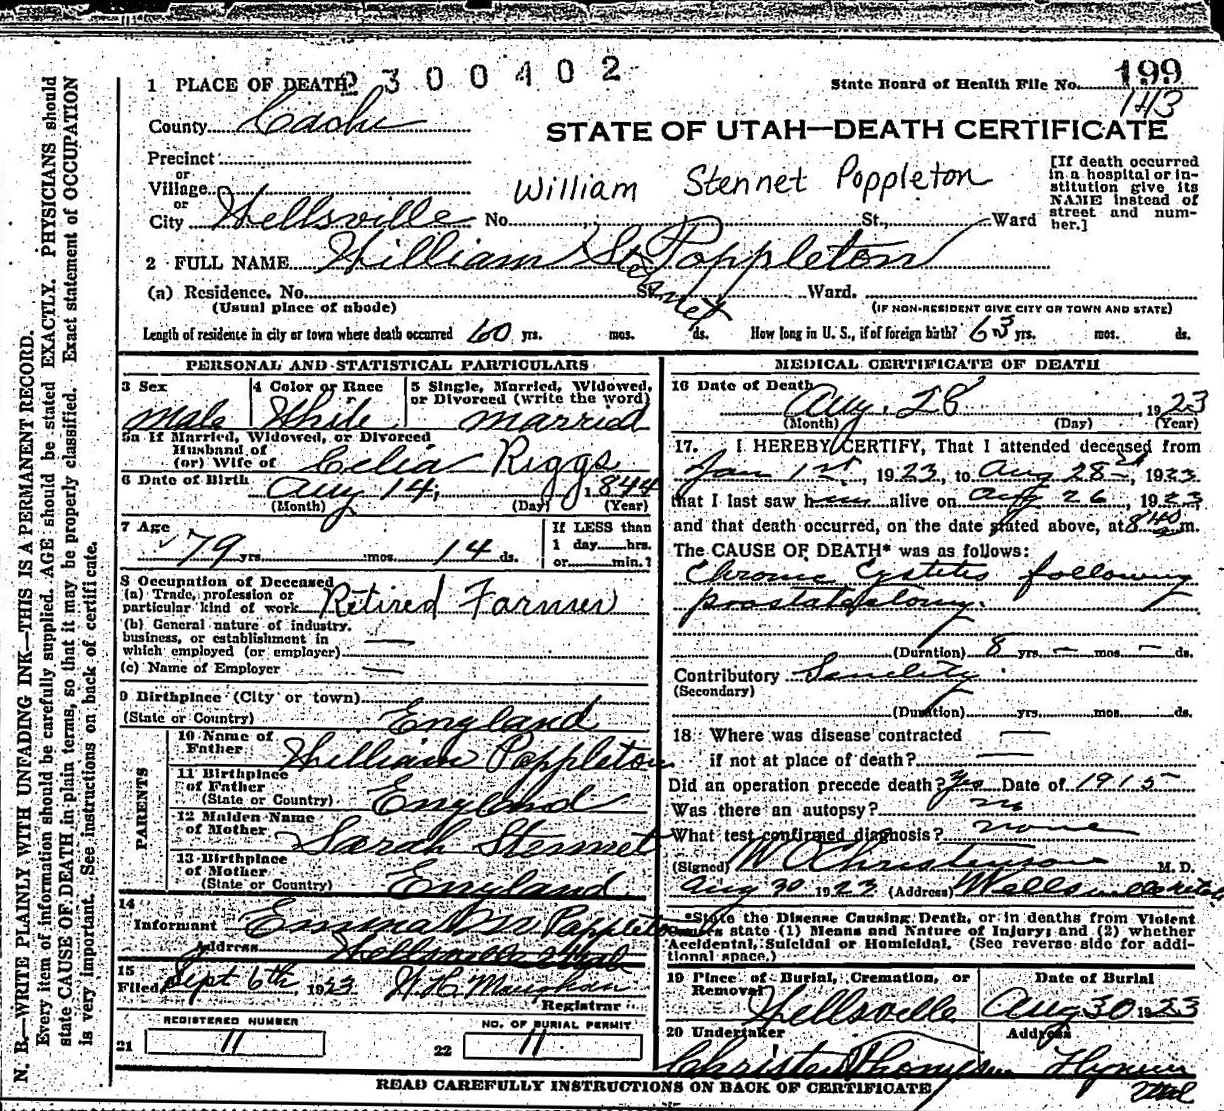 N. B.—WRITE PLAINLY WITH UNFADING INK—THIS IS A PERMANENT RECORD.
Every item of information should be carefully supplied. AGE should be stated EXACTLY. PHYSICIANS should
state CAUSE OF DEATH in plain terms, so that it may be properly classified. Exact statement of OCCUPATION
is very important. See instructions on back of certificate.
2300402
1 PLACE OF DEATH
State Board of Health File No. 199
143
County Cache
STATE OF UTAH—DEATH CERTIFICATE
Precinct
or
Village
or
City Wellsville No. St., Ward
William Stennet Poppleton
[If death occurred
in a hospital or in-
stitution give its
NAME instead of
street and num-
ber.]
2 FULL NAME William Stennet Poppleton
(a) Residence. No. St. Ward.
(Usual place of abode) (IF NON-RESIDENT GIVE CITY OR TOWN AND STATE)
Length of residence in city or town where death occurred 60 yrs. mos. ds. How long in U. S., if of foreign birth? 63 yrs. mos. ds.
PERSONAL AND STATISTICAL PARTICULARS
3 Sex
Male
4 Color or Race
White
5 Single, Married, Widowed,
or Divorced (write the word)
married
5a If Married, Widowed, or Divorced
Husband of
(or) Wife of Celia Riggs
6 Date of Birth Aug 14, 1844
(Month) (Day) (Year)
7 Age
79 yrs. mos. 14 ds.
If LESS than
1 day hrs.
or min.?
8 Occupation of Deceased
(a) Trade, profession or
particular kind of work Retired Farmer
(b) General nature of industry,
business, or establishment in
which employed (or employer) —
(c) Name of Employer —
9 Birthplace (City or town)
(State or Country) England
PARENTS
10 Name of
Father William Poppleton
11 Birthplace
of Father
(State or Country) England
12 Maiden Name
of Mother Sarah Stennet
13 Birthplace
of Mother
(State or Country) England
14
Informant Emma M Poppleton
Address Wellsville Utah
15
Filed Sept 6th, 1923 W. H. Maughan
Registrar
REGISTERED NUMBER
21 11
NO. OF BURIAL PERMIT
22 11
MEDICAL CERTIFICATE OF DEATH
16 Date of Death
Aug. 28, 1923
(Month) (Day) (Year)
17. I HEREBY CERTIFY, That I attended deceased from
Jan 1st, 1923, to Aug 28, 1923,
that I last saw him alive on Aug 26, 1923,
and that death occurred, on the date stated above, at 8 40 m.
The CAUSE OF DEATH* was as follows:
Chronic Cystitis following
prostatectomy.
(Duration) 8 yrs. — mos. — ds.
Contributory Senility
(Secondary)
(Duration) yrs. mos. ds.
18. Where was disease contracted —
if not at place of death? —
Did an operation precede death? Yes Date of 1915
Was there an autopsy? no
What test confirmed diagnosis? none
(Signed) W O Christenson M. D.
Aug 30 1923 (Address) Wellsville Utah
*State the Disease Causing Death, or in deaths from Violent
Causes state (1) Means and Nature of Injury; and (2) whether
Accidental, Suicidal or Homicidal. (See reverse side for addi-
tional space.)
19 Place of Burial, Cremation, or
Removal Wellsville
Date of Burial
Aug 30 1923
20 Undertaker Address
Hyrum
Utah
READ CAREFULLY INSTRUCTIONS ON BACK OF CERTIFICATE